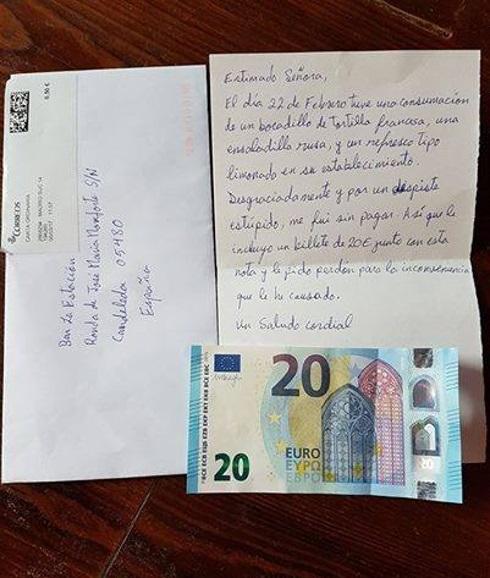 6,50 €
CORREOS
CARTA ORDINARIA
Bar La Estación
Ronda de Jose Maria Monforte S/N
Candeleda 05480
España
Estimado Señora,
El día 22 de Febrero tuve una consumación
de un bocadillo de tortilla francesa, una
ensaladilla rusa, y un refresco tipo
limonado en su establecimiento.
Desgraciadamente y por un despiste
estúpido, me fui sin pagar. Así que le
incluyo un billete de 20€ junto con esta
nota y le pido perdón para la inconveniencia
que le he causado.
Un Saludo cordial
20
EURO
ΕΥΡΩ
ЕВРО
20